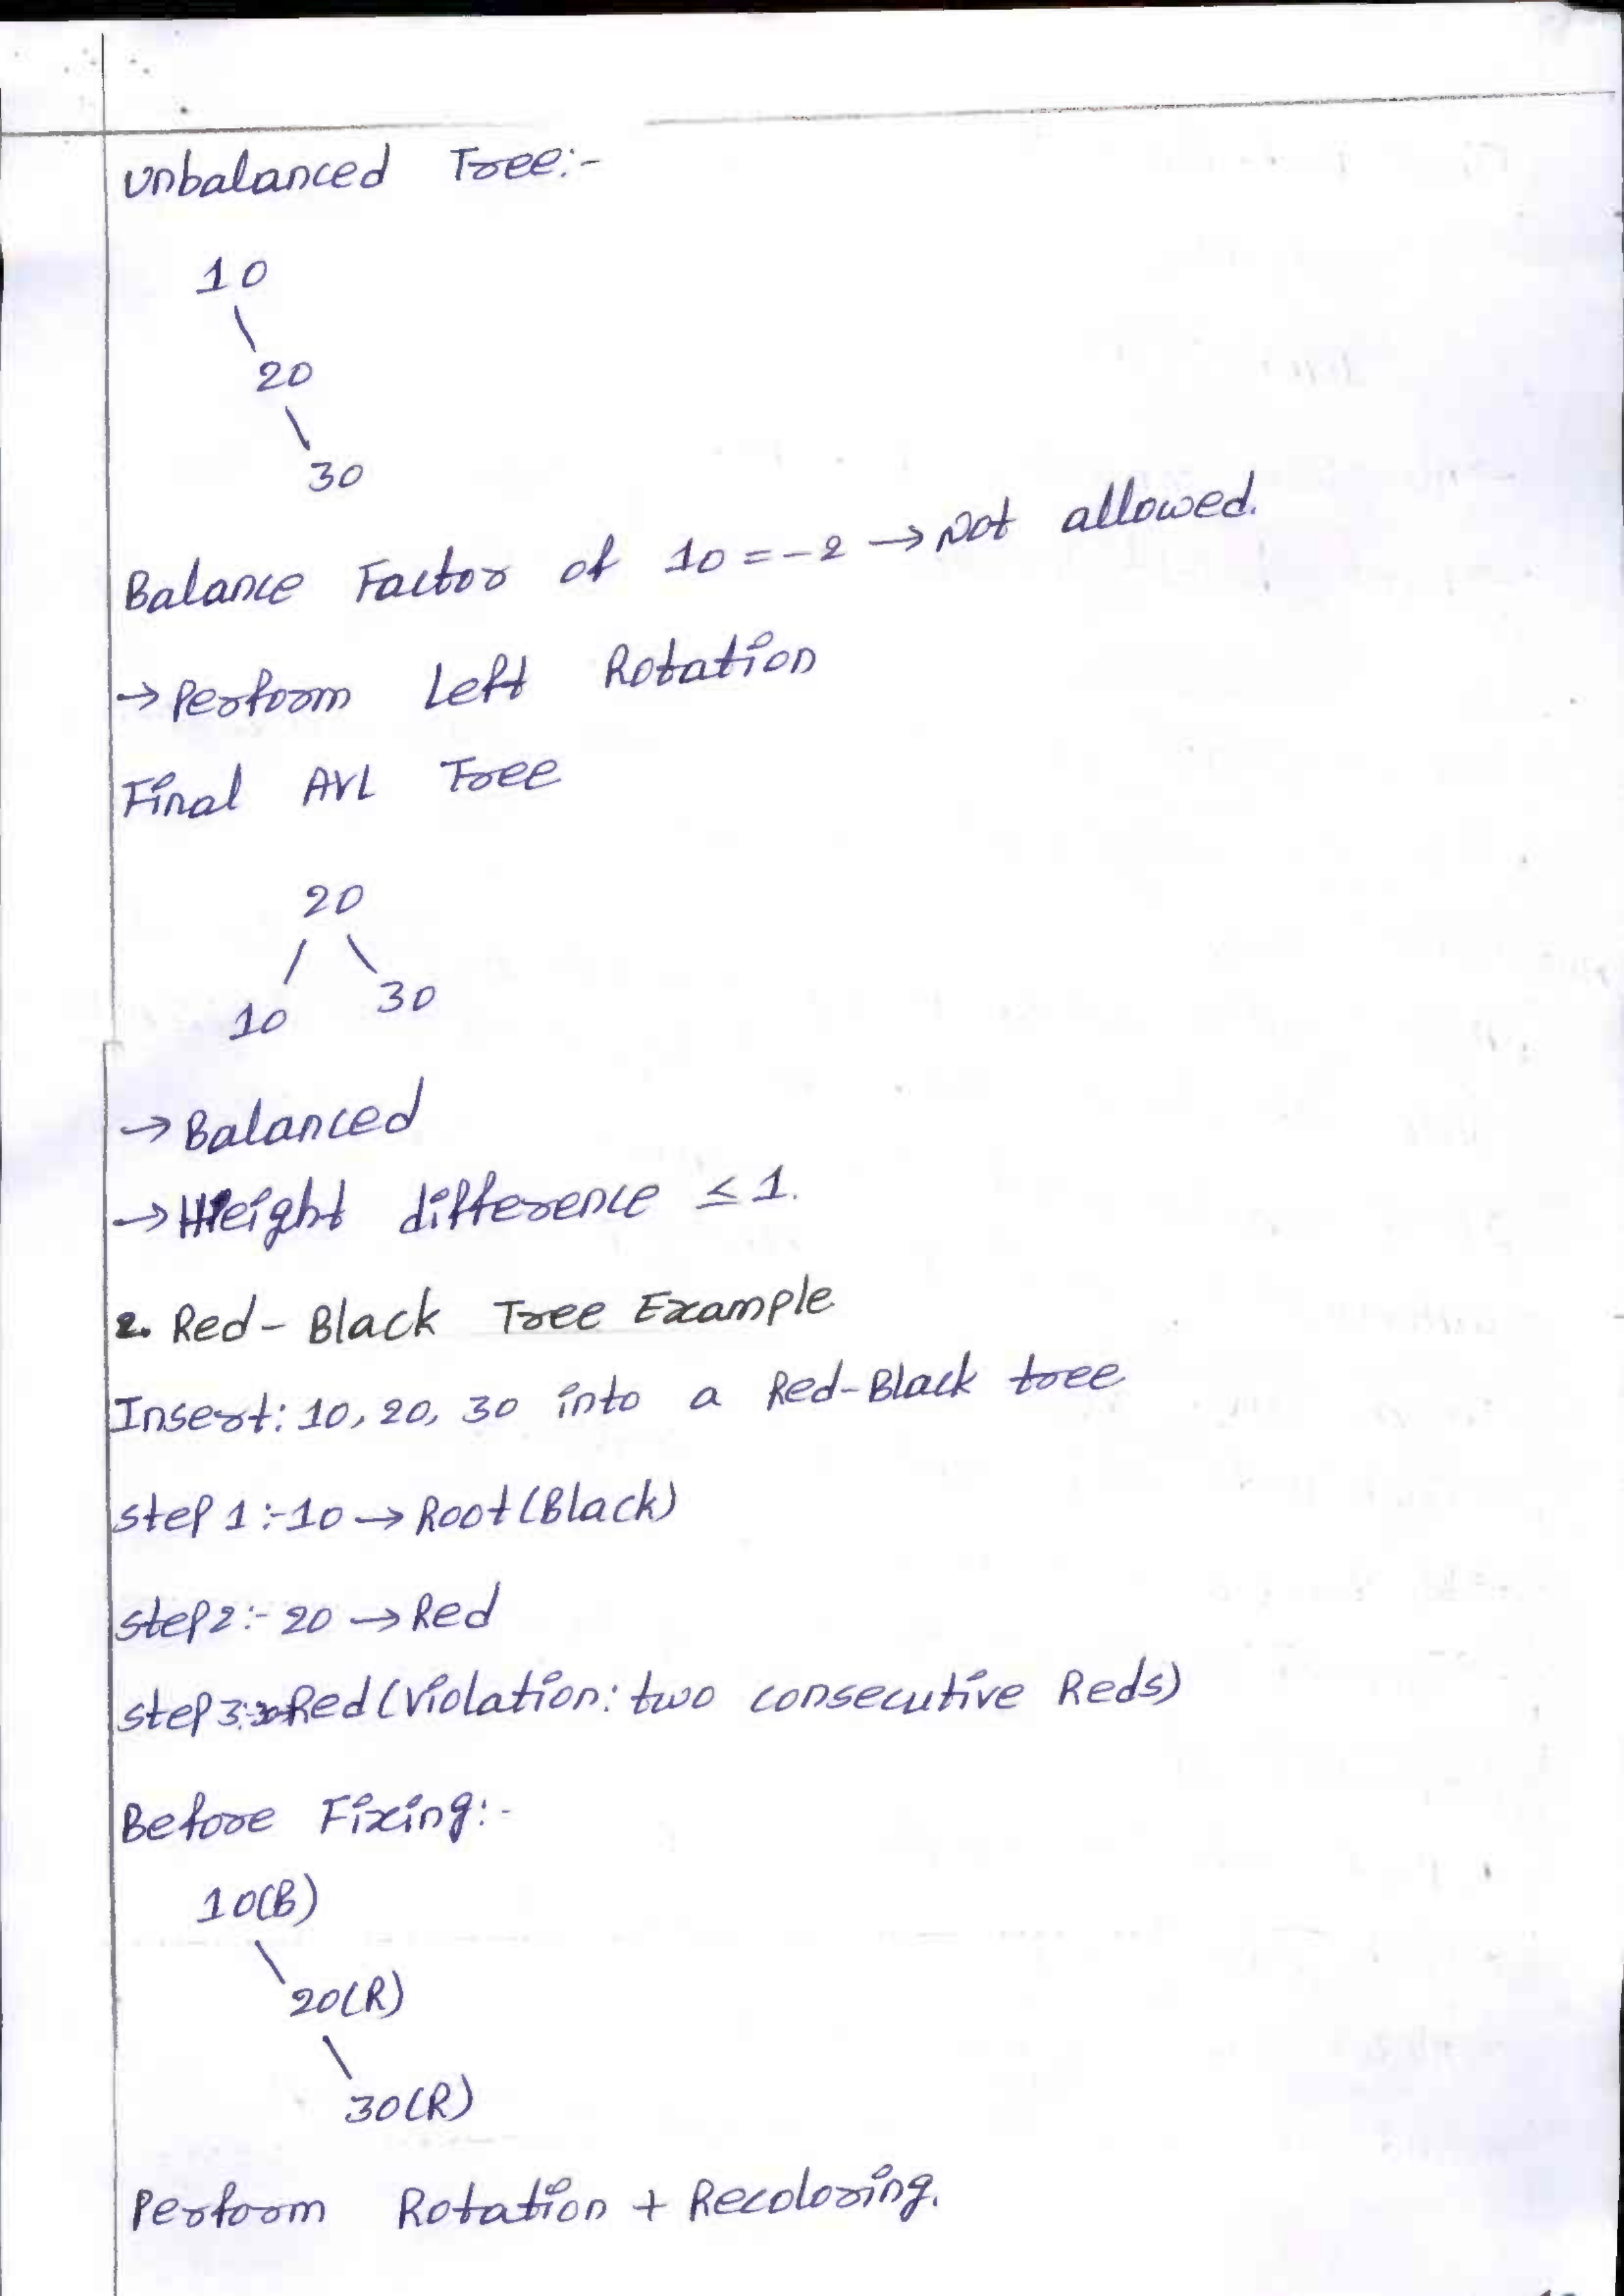 Unbalanced Tree:-
10
\
20
\
30
Balance Factor of 10 = -2 → Not allowed.
→ Perform Left Rotation
Final AVL Tree
20
/ \
10 30
→ Balanced
→ Height difference ≤ 1.
2. Red-Black Tree Example
Insert: 10, 20, 30 into a Red-Black tree
step 1:- 10 → Root (Black)
step 2:- 20 → Red
step 3:- Red (Violation: two consecutive Reds)
Before Fixing:-
10(B)
\
20(R)
\
30(R)
Perform Rotation + Recoloring.